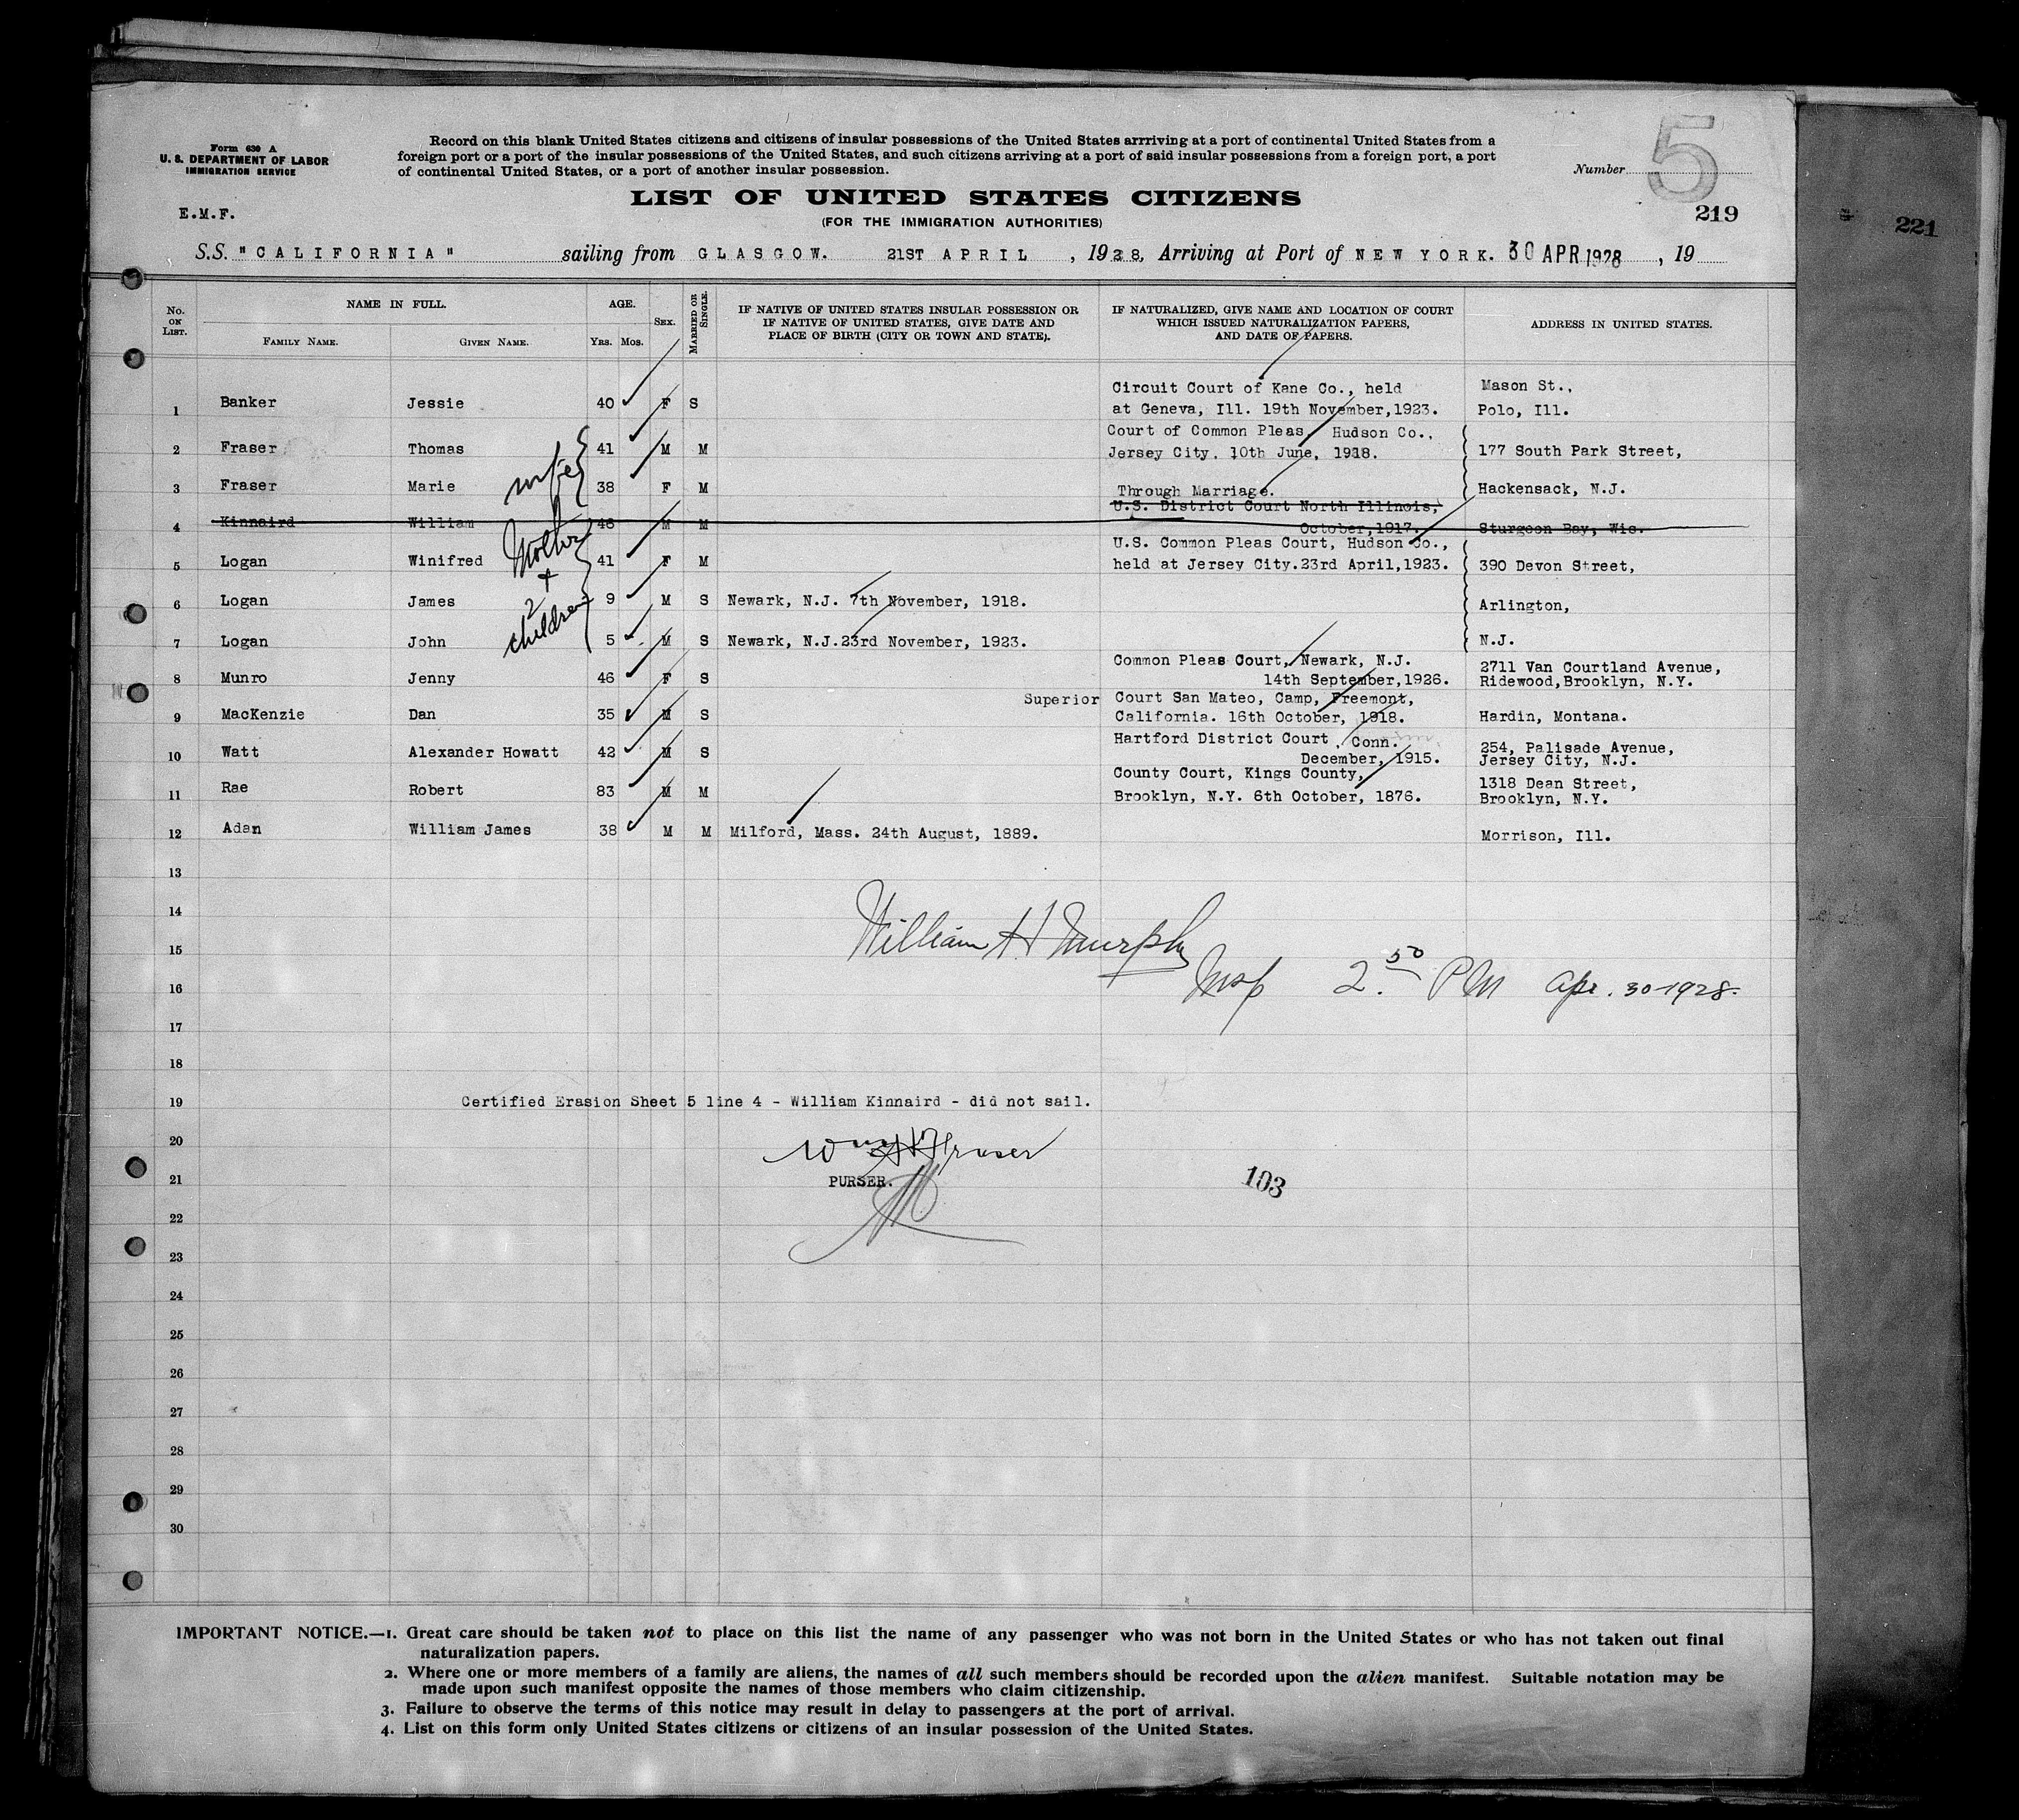 Form 630 A
U. S. DEPARTMENT OF LABOR
IMMIGRATION SERVICE
Record on this blank United States citizens and citizens of insular possessions of the United States arrriving at a port of continental United States from a
foreign port or a port of the insular possessions of the United States, and such citizens arriving at a port of said insular possessions from a foreign port, a port
of continental United States, or a port of another insular possession.
Number 5
LIST OF UNITED STATES CITIZENS
E.M.F.
(FOR THE IMMIGRATION AUTHORITIES)
219
221
S.S. "CALIFORNIA" sailing from GLASGOW. 21ST APRIL, 1928, Arriving at Port of NEW YORK. 30 APR 1928, 19
No. ON LIST.
NAME IN FULL.
FAMILY NAME.
GIVEN NAME.
AGE.
YRS. MOS.
SEX.
MARRIED OR SINGLE.
IF NATIVE OF UNITED STATES INSULAR POSSESSION OR
IF NATIVE OF UNITED STATES, GIVE DATE AND
PLACE OF BIRTH (CITY OR TOWN AND STATE).
IF NATURALIZED, GIVE NAME AND LOCATION OF COURT
WHICH ISSUED NATURALIZATION PAPERS,
AND DATE OF PAPERS.
ADDRESS IN UNITED STATES.
1 Banker Jessie 40 F S Circuit Court of Kane Co., held Mason St.,
at Geneva, Ill. 19th November,1923. Polo, Ill.
2 Fraser Thomas 41 M M Court of Common Pleas, Hudson Co.,
Jersey City. 10th June, 1918. 177 South Park Street,
3 Fraser Marie wife 38 F M Through Marriage. Hackensack, N.J.
4 Kinnaird William 48 M M U.S. District Court North Illinois,
October,1917. Sturgeon Bay, Wis.
5 Logan Winifred Mother 41 F M U.S. Common Pleas Court, Hudson Co.,
held at Jersey City.23rd April,1923. 390 Devon Street,
6 Logan James + 2 children 9 M S Newark, N.J. 7th November, 1918. Arlington,
7 Logan John 5 M S Newark, N.J.23rd November, 1923. N.J.
8 Munro Jenny 46 F S Common Pleas Court, Newark, N.J. 2711 Van Courtland Avenue,
14th September,1926. Ridewood,Brooklyn, N.Y.
9 MacKenzie Dan 35 M S Superior Court San Mateo, Camp, Freemont,
California. 16th October, 1918. Hardin, Montana.
10 Watt Alexander Howatt 42 M S Hartford District Court, Conn. 254, Palisade Avenue,
December, 1915. Jersey City, N.J.
11 Rae Robert 83 M M County Court, Kings County, 1318 Dean Street,
Brooklyn, N.Y. 6th October, 1876. Brooklyn, N.Y.
12 Adan William James 38 M M Milford, Mass. 24th August, 1889. Morrison, Ill.
13
14
William H Murphy
15
Insp 2.50 PM Apr. 30-1928.
16
17
18
19 Certified Erasion Sheet 5 line 4 - William Kinnaird - did not sail.
20 Fraser
21 PURSER. 103
22
23
24
25
26
27
28
29
30
IMPORTANT NOTICE.—1. Great care should be taken not to place on this list the name of any passenger who was not born in the United States or who has not taken out final
naturalization papers.
2. Where one or more members of a family are aliens, the names of all such members should be recorded upon the alien manifest. Suitable notation may be
made upon such manifest opposite the names of those members who claim citizenship.
3. Failure to observe the terms of this notice may result in delay to passengers at the port of arrival.
4. List on this form only United States citizens or citizens of an insular possession of the United States.